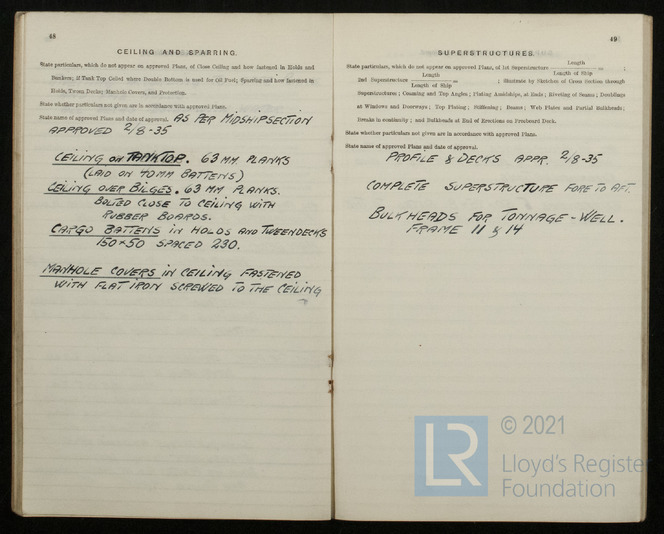 48
CEILING AND SPARRING.
State particulars, which do not appear on approved Plans, of Close Ceiling and how fastened in Holds and
Bunkers; if Tank Top Ceiled where Double Bottom is used for Oil Fuel; Sparring and how fastened in
Holds, Tween Decks; Manhole Covers, and Protection.
State whether particulars not given are in accordance with approved Plans.
State name of approved Plans and date of approval. AS PER MIDSHIPSECTION
APPROVED 2/8-35
CEILING ON TANKTOP. 63 MM PLANKS
(LAID ON 40 MM BATTENS)
CEILING OVER BILGES. 63 MM PLANKS.
BOLTED CLOSE TO CEILING WITH
RUBBER BOARDS.
CARGO BATTENS IN HOLDS AND TWEENDECKS
150×50 SPACED 230.
MANHOLE COVERS IN CEILING FASTENED
WITH FLAT IRON SCREWED TO THE CEILING
49
SUPERSTRUCTURES.
State particulars, which do not appear on approved Plans, of 1st Superstructure Length / Length of Ship = ;
2nd Superstructure Length / Length of Ship = ; Illustrate by Sketches of Cross Section through
Superstructures; Coaming and Top Angles; Plating Amidships, at Ends; Riveting of Seams; Doublings
at Windows and Doorways; Top Plating; Stiffening; Beams; Web Plates and Partial Bulkheads;
Breaks in continuity; and Bulkheads at End of Erections on Freeboard Deck.
State whether particulars not given are in accordance with approved Plans.
State name of approved Plans and date of approval.
PROFILE & DECKS APPR. 2/8-35
COMPLETE SUPERSTRUCTURE FORE TO AFT.
BULKHEADS FOR TONNAGE-WELL.
FRAME 11 & 14
LR
© 2021
Lloyd's Register
Foundation